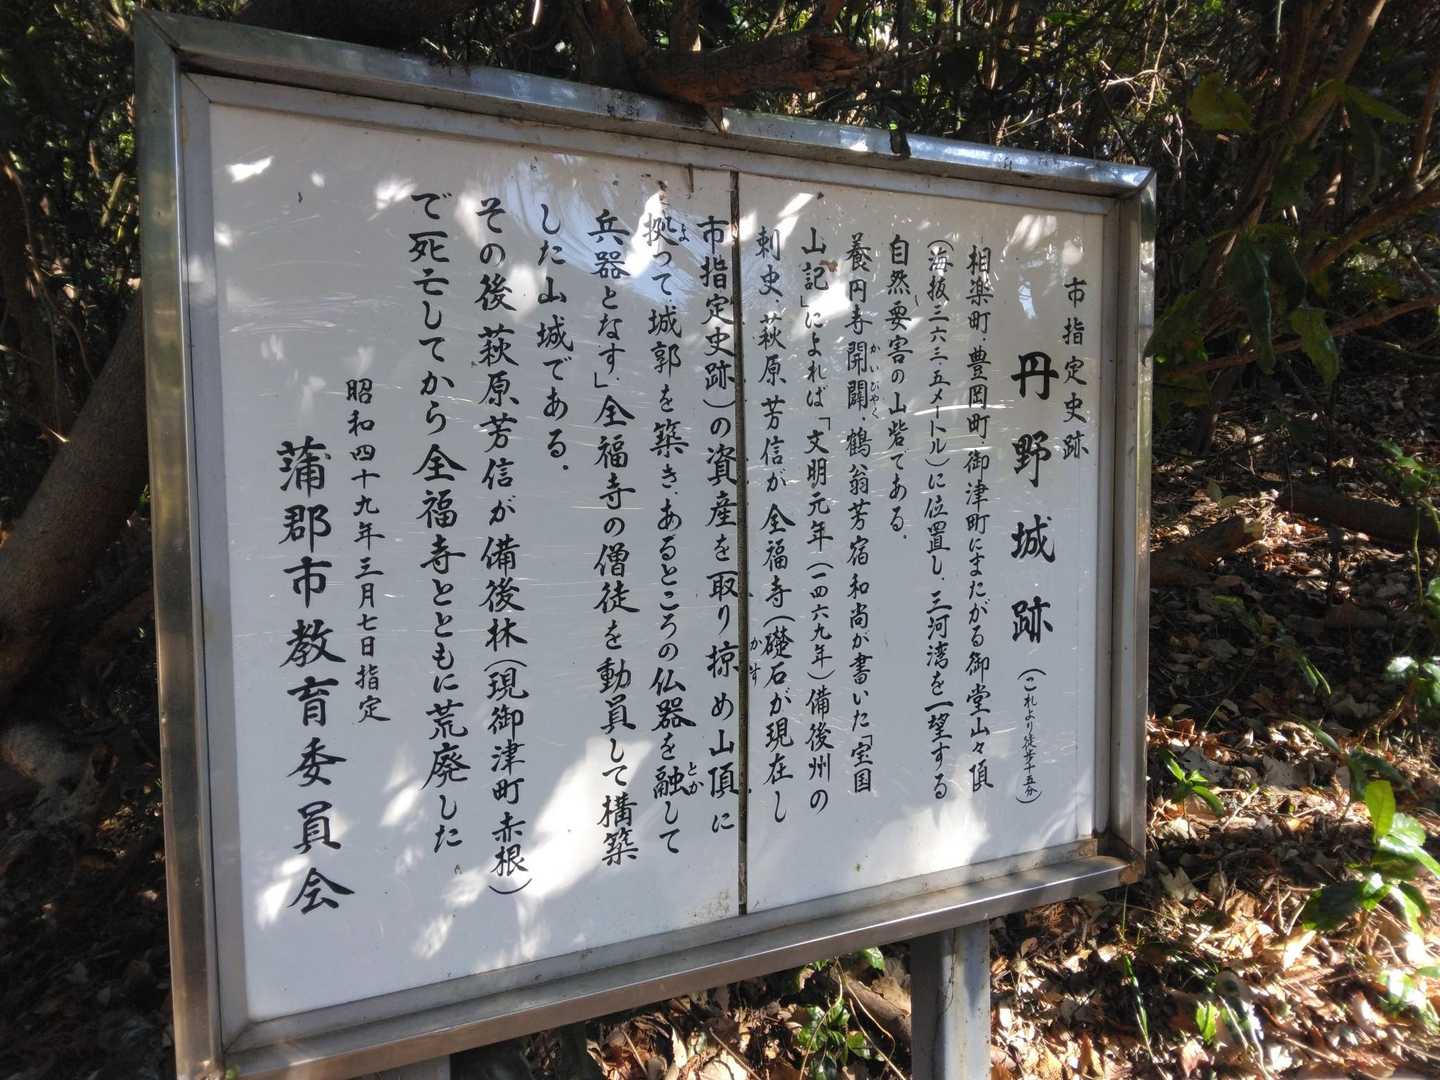 市指定史跡
丹野城跡（これより徒歩十五分）
相楽町、豊岡町、御津町にまたがる御堂山々頂
（海抜三六三.五メートル）に位置し、三河湾を一望する
自然要害の山砦である。
養円寺開闢、鶴翁芳宿和尚が書いた「宝国
かいびやく
山記」によれば「文明元年（一四六九年）備後州の
刺史、萩原芳信が全福寺（礎石が現在し
市指定史跡）の資産を取り掠め山頂に
かす
拠って、城郭を築き、あるところの仏器を融して
よ
とか
兵器となす」全福寺の僧徒を動員して構築
した山城である。
その後萩原芳信が備後林（現御津町赤根）
で死亡してから全福寺とともに荒廃した
昭和四十九年三月七日指定
蒲郡市教育委員会